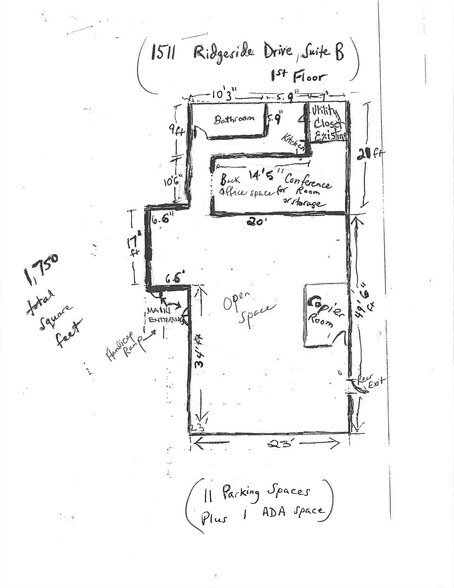 1511 Ridgeside Drive, Suite B
1st Floor
10'3"
5.9"
7'
Bathroom
5.9"
Utility
Closet
Existing
9 ft
Kitchen
21 ft
10'6"
14'5"
Back
Office space for
Conference
Room
or storage
6.6"
20'
17'
ft
1,750
total
square
feet
6.6"
MAIN
ENTRANCE
Handicap
Ramp
Open
Space
Copier
Room
49'6"
ft
34' ft
Rear
Exit
23'
23'
11 Parking Spaces
Plus 1 ADA space